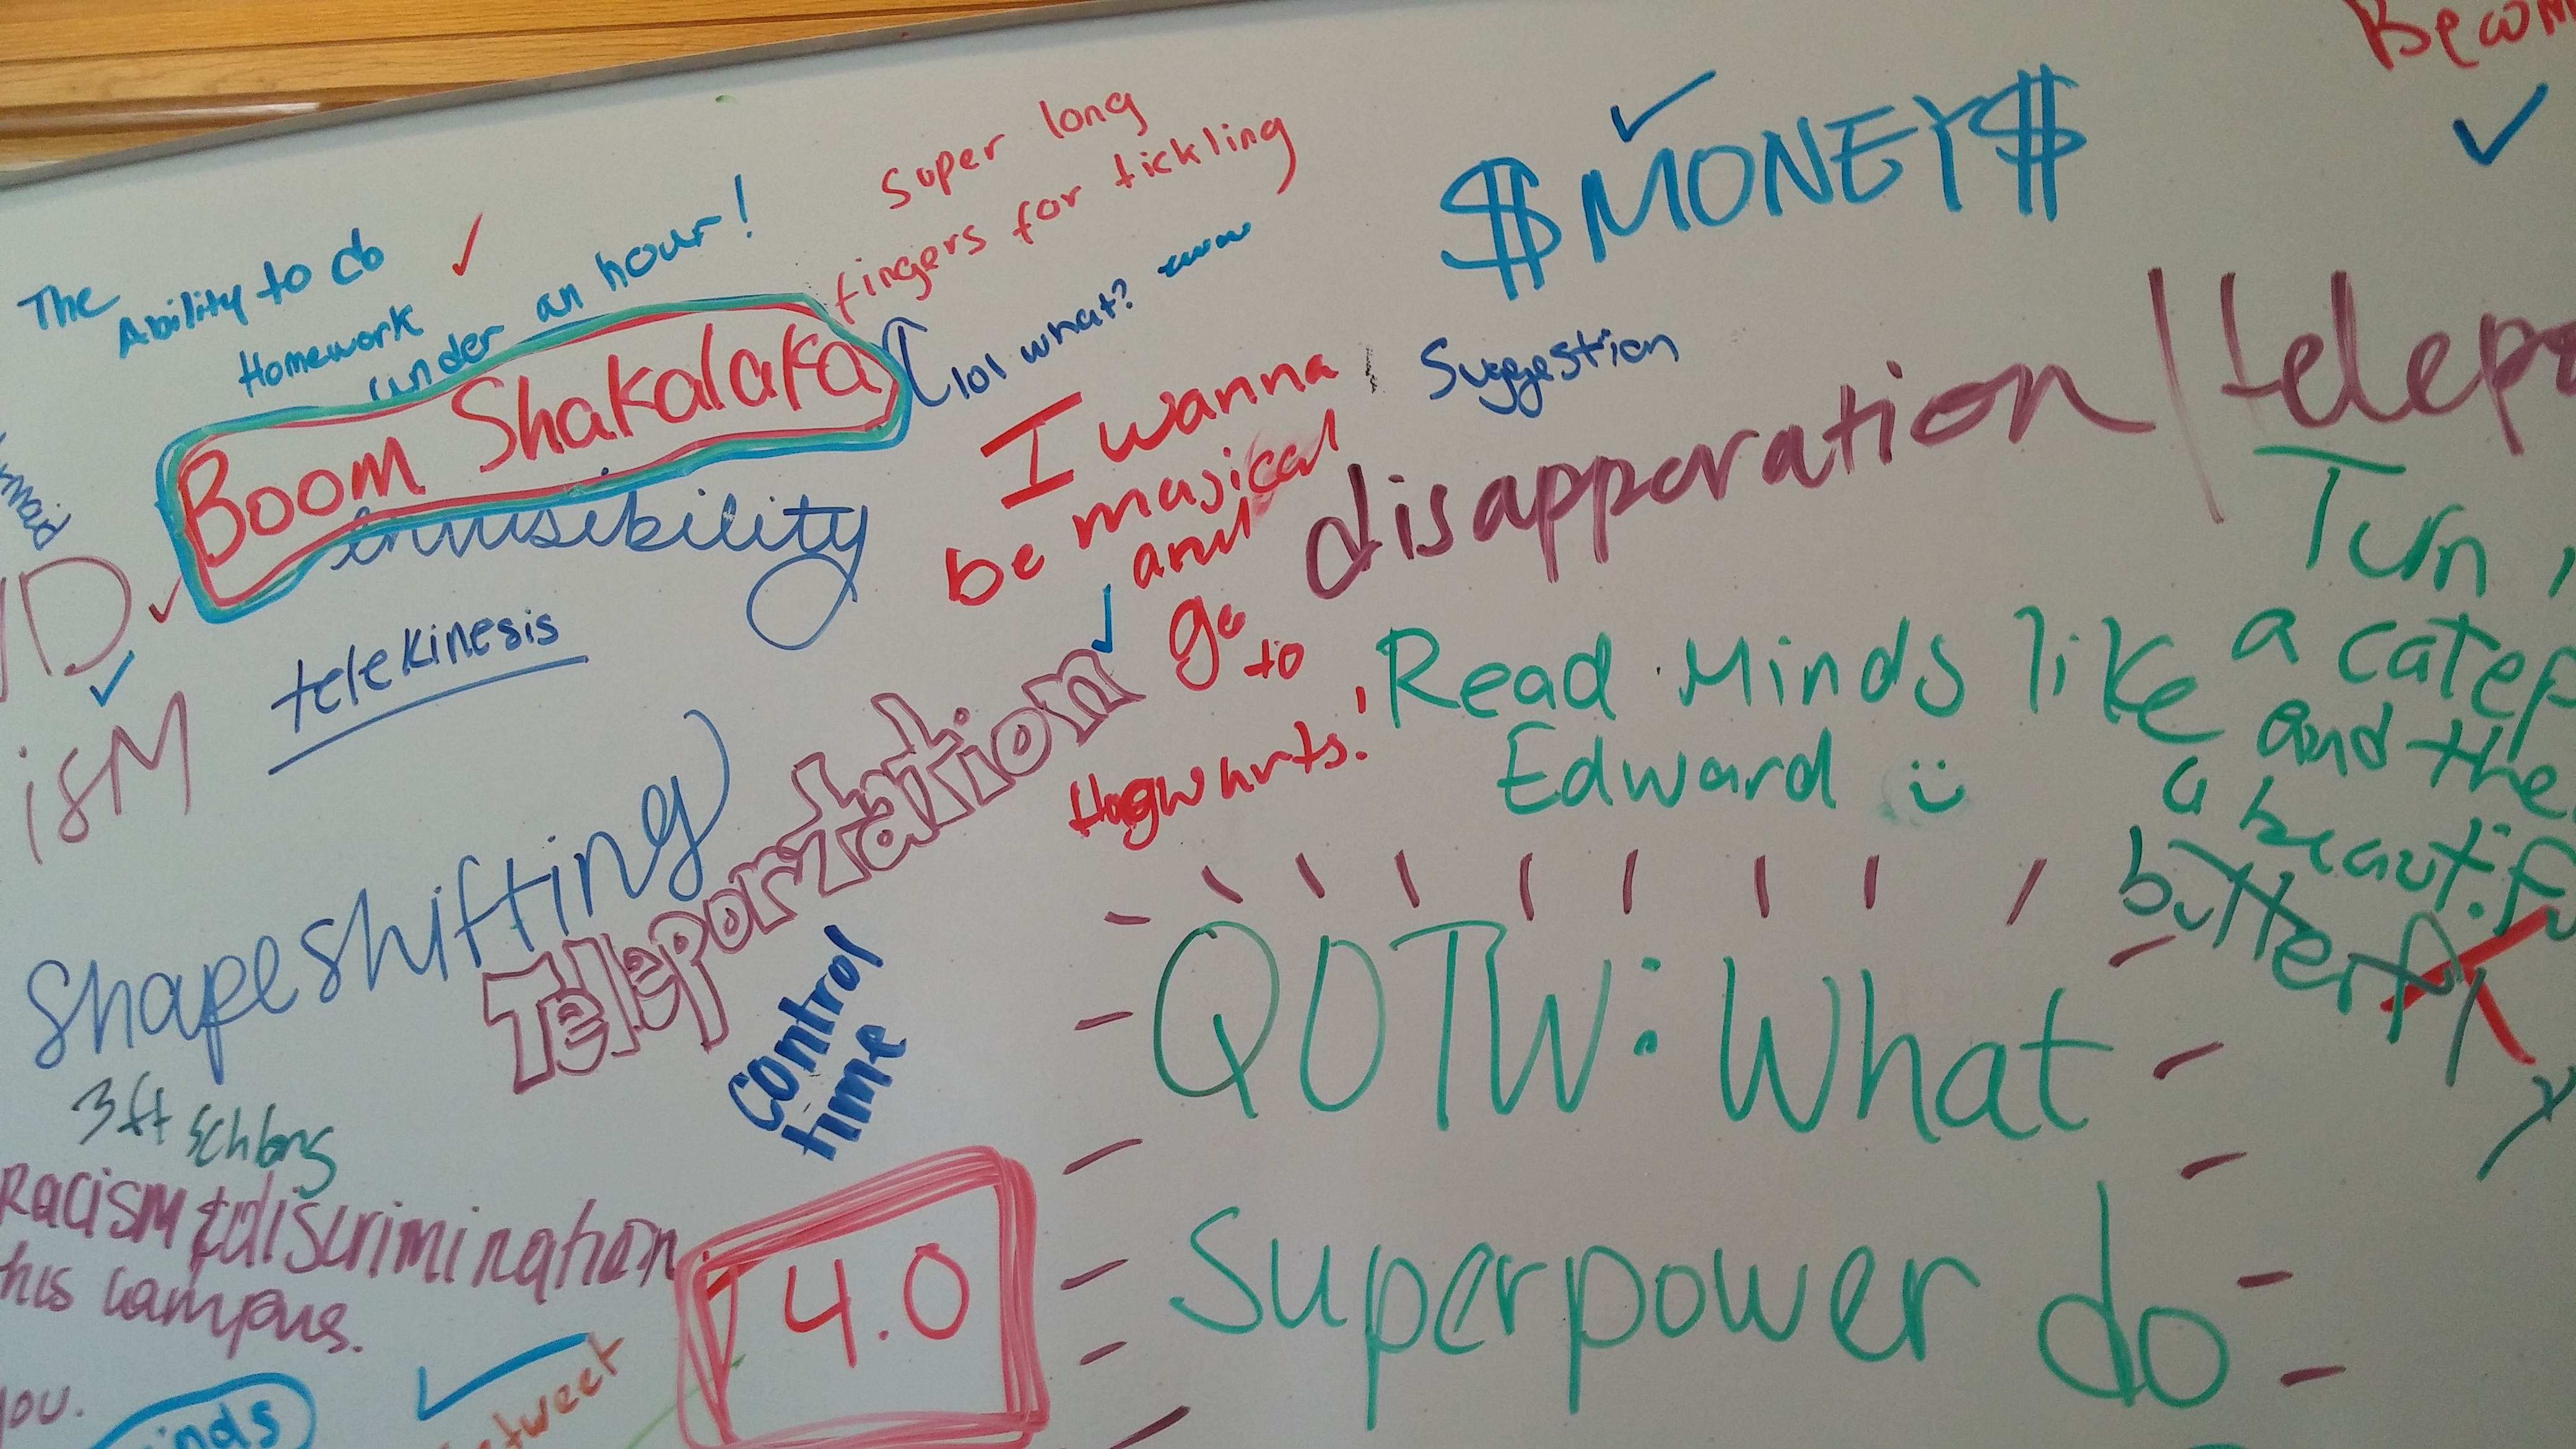 Becom
The
Ability to do
Homework
under an hour!
Super long
fingers for tickling
lol what?
$MONEY$
Boom Shakalaka
invisibility
telekinesis
I wanna
be magical
and
go
to
Hogwarts!
Suggestion
disapparation / telepo
Read Minds like
Edward
Turn
a caterp
and the
a beautifu
butterfly
D
ism
shapeshifting
Teleportation
Control
time
3ft
Racism & discrimination
his campus.
you.
inds
tweet
4.0
QOTW: What
Superpower do